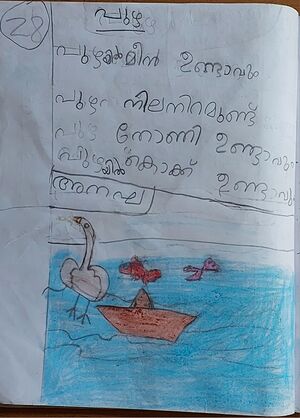 28
പുഴ
പുഴയിൽ മീൻ ഉണ്ടാവും
പുഴ നിലനിറമുണ്ട്
പുഴ തോണി ഉണ്ടാവും
പുഴയിൽ കൊക്ക് ഉണ്ടാവും
അനഘ